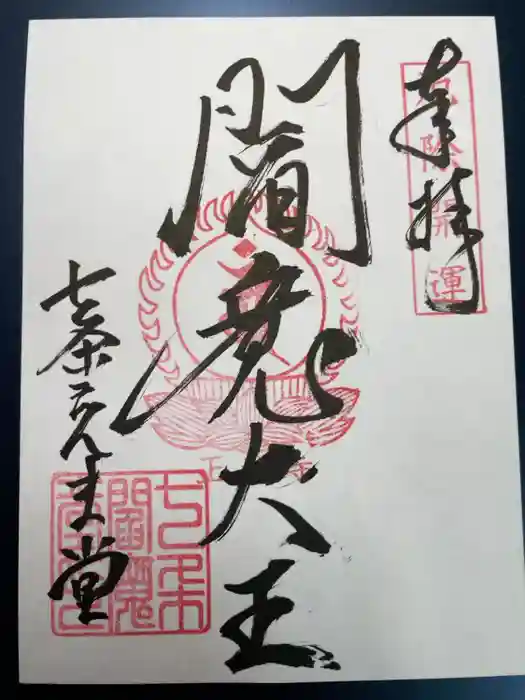 奉拝
厄除開運
閻魔大王
七条えんま堂
七条
閻魔